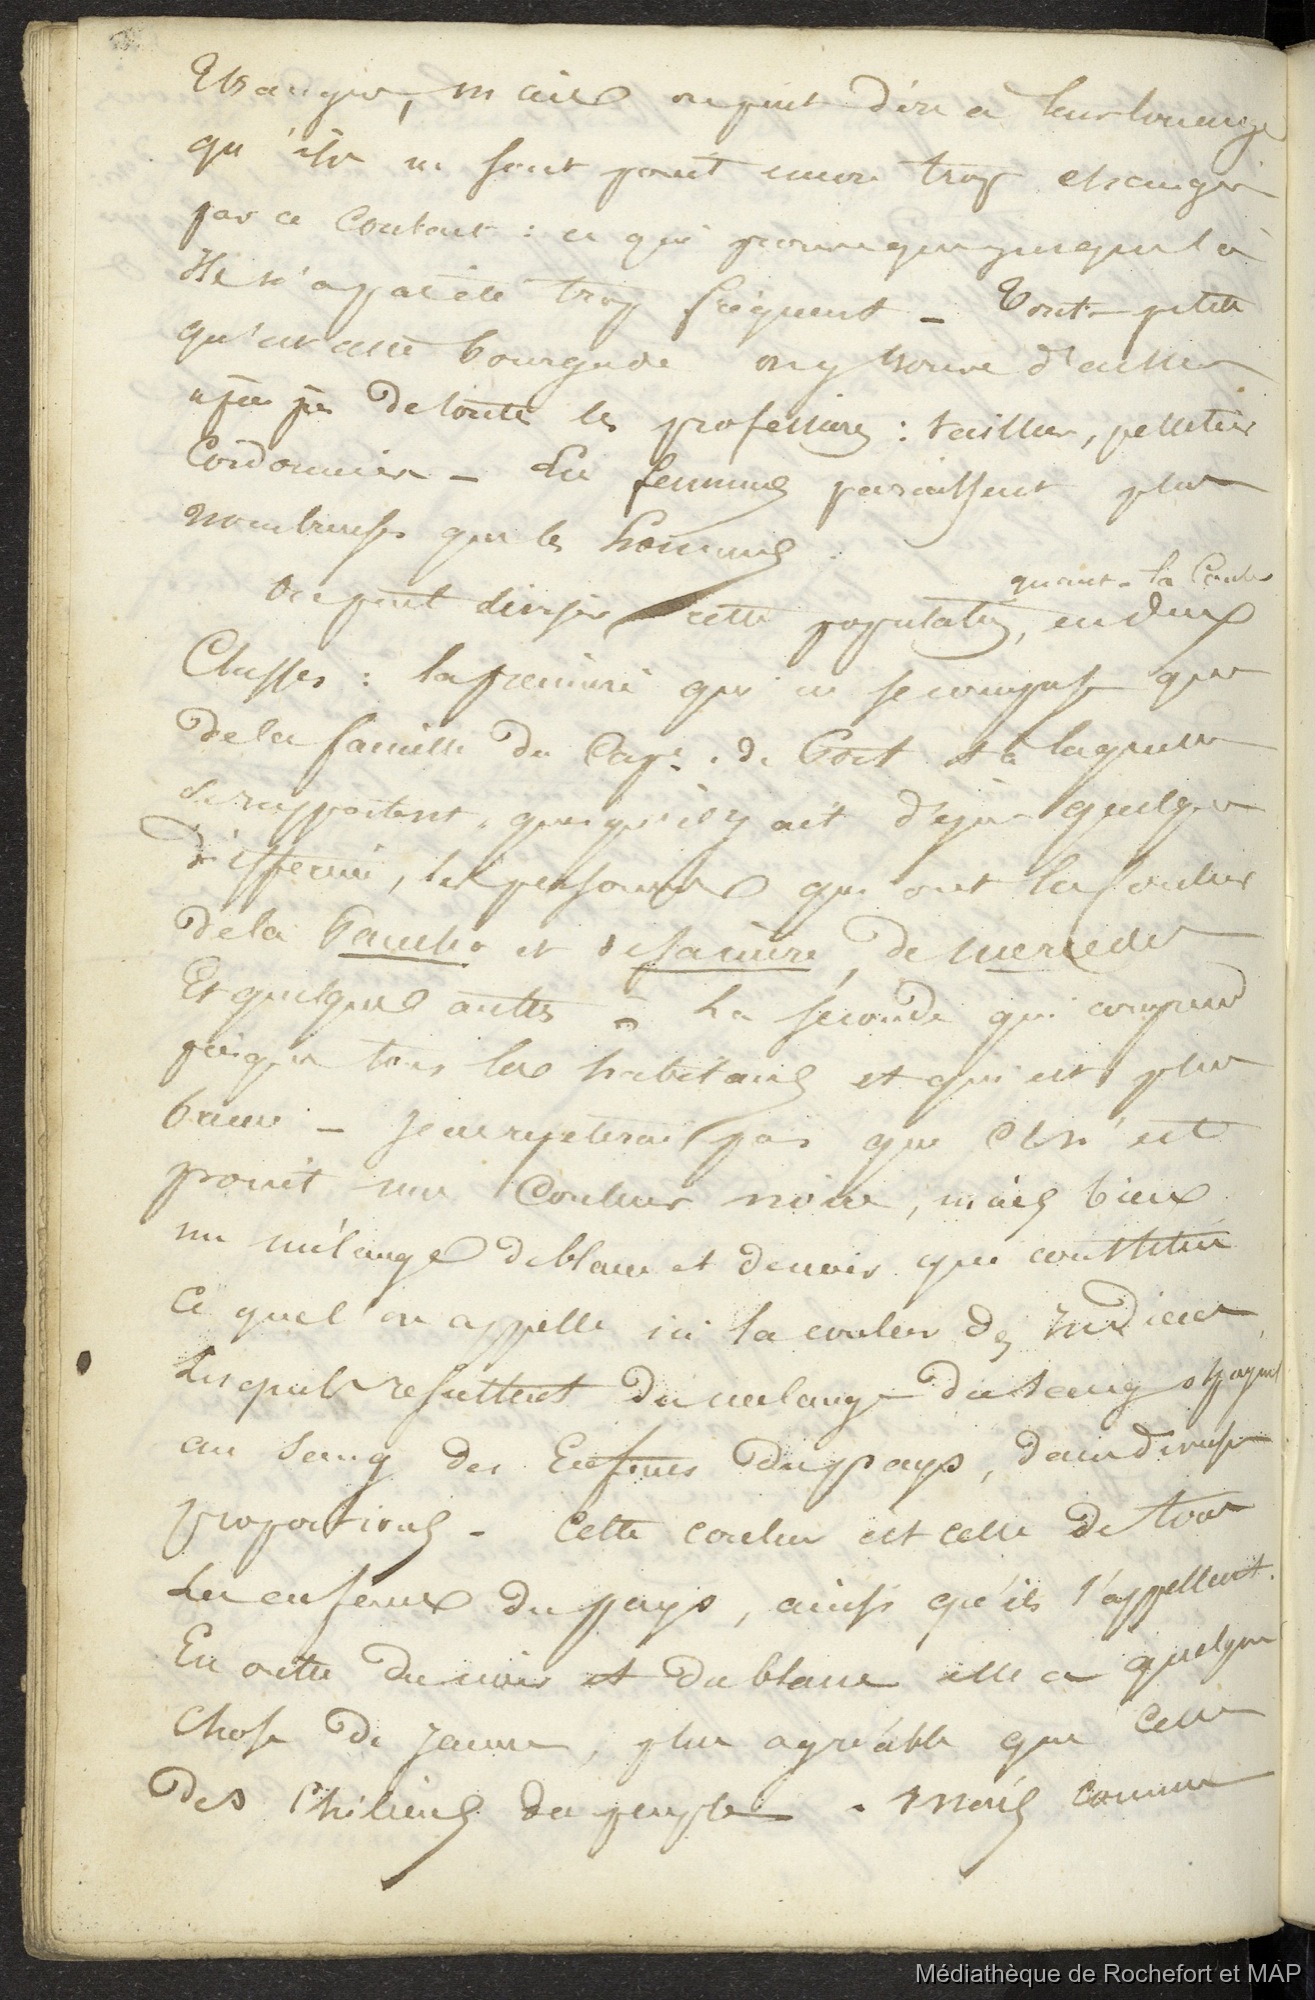 Etrangers, mais on peut dire à leur louange
qu'ils ne sont point encore trop changés
par ce Contact : ce qui prouve que jusque là
Il n'a pas été trop fréquent _ Toute petite
qu'est cette bourgade on y trouve d'ailleurs
à peu près de toutes les professions : tailleur, pelletier
Cordonnier _ Les femmes paraissent plus
nombreuses que les hommes.
quant à la Couleur
On peut diviser cette population, en deux
Classes : la première qui ne se compose que
de la famille du Cap.e de Port et à laquelle
se rapportent, quoiqu'il y ait déjà quelque
différence, les personnes qui ont la couleur
de la et de , de Mercedes
Et quelques autres _ La seconde qui comprend
presque tous les habitans et qui est plus
brune _ Je ne répeterai pas que ce n'est
point une Couleur noire, mais bien
un mélange de blanc et de noir qui constitue
ce que l'on appelle ici la couleur des Indiens,
Lesquels resultent du melange du sang espagnol
au sang des Enfans du pays, dans diverses
proportions _ Cette couleur est celle de tous
Les enfans du pays, ainsi qu'ils s'appellent.
En outre du noir et du blanc elle a quelque
Chose de jaune, plus agréable que celle
des Chiliens du peuple . Mais comme
Médiathèque de Rochefort et MAP